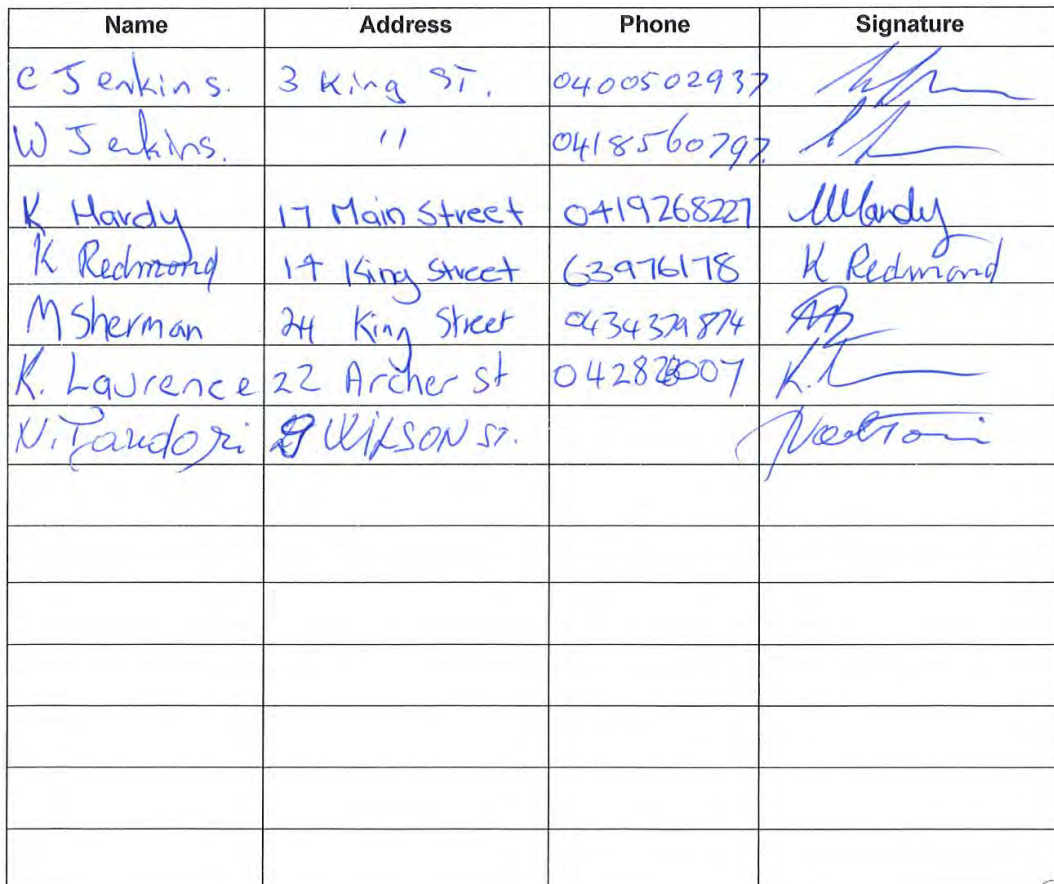 Name Address Phone Signature
C Jenkins. 3 King ST. 0400502937
W Jenkins. " 0418560797
K Hardy 17 Main Street 0419268227
K Redmond 14 King Street 63976178 K Redmond
M Sherman 24 King Street 0434379874
K. Laurence 22 Archer St
WILSON ST.